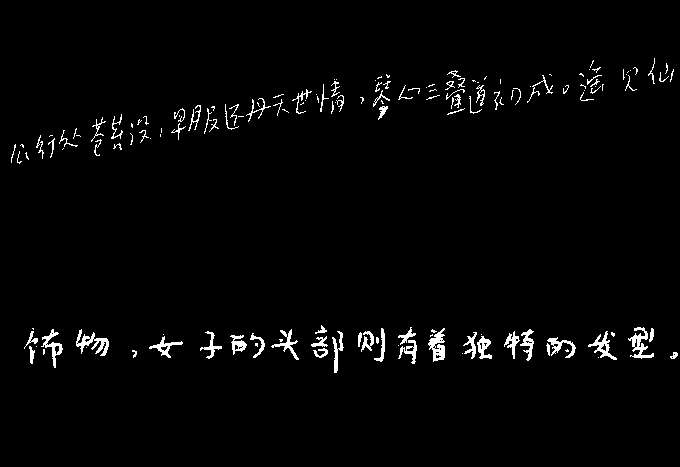 公行处苍苔没,早服还丹无世情,琴心三叠道初成。遥见仙
饰物,女子的头部则有着独特的发型。